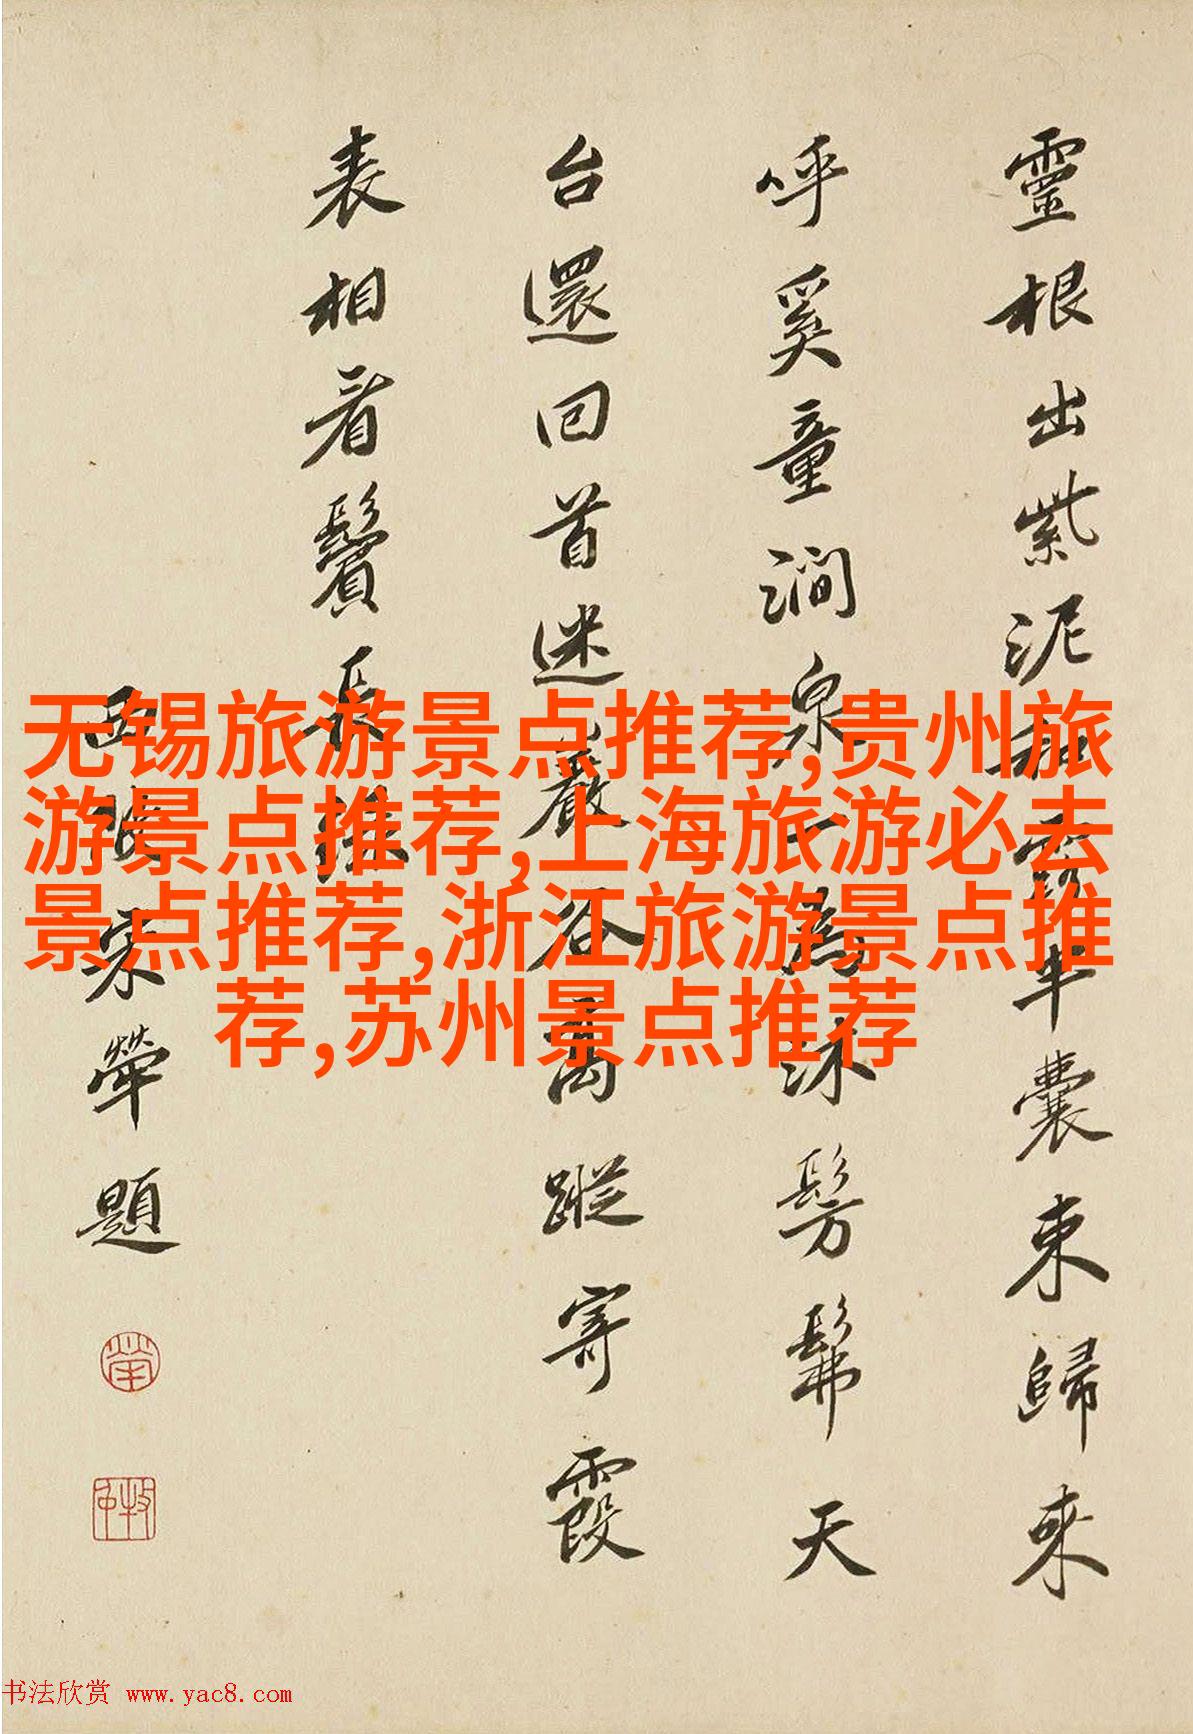 靈根出紫泥和半囊束歸來
呼奚童澗泉一為沐髣髴天
台還回首迷巖谷萬蹤寄霞
表相看鬢長綠
西陂宋犖題
犖
牧仲
无锡旅游景点推荐,贵州旅
游景点推荐,上海旅游必去
景点推荐,浙江旅游景点推
荐,苏州景点推荐
书法欣赏 www.yac8.com